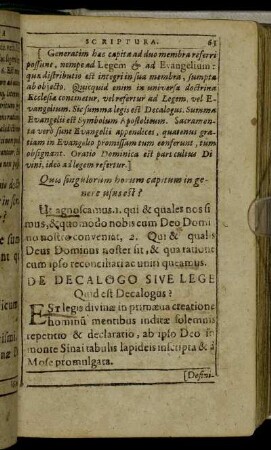 SCRIPTURA. 63
[Generatim hæc capita ad duo membra referri
possunt, nempe ad Legem & ad Evangelium:
quæ distributio est integri in sua membra, sumpta
ab objecto. Quicquid enim in universa doctrina
Ecclesiæ continetur, vel refertur ad Legem, vel E-
vangelium. Sic summa legis est Decalogus. Summa
Evangelii est Symbolum Apostolicum. Sacramen-
ta verò sunt Evangelii appendices, quatenus gra-
tiam in Evangelio promissam tum conferunt, tum
obsignant. Oratio Dominica est pars cultus Di
vini, ideò ad legem refertur.]
Quis singulorum horum capitum in ge-
nere usus est?
Ut agnoscamus. 1. qui & quales nos si
mus, & quomodo nobis cum Deo Domi
no nostro conveniat, 2. Qui & qualis
Deus Dominus noster sit, & qua ratione
cum ipso reconciliari ac uniri queamus.
DE DECALOGO SIVE LEGE
Quid est Decalogus?
EST legis divinæ in primæva creatione
hominũ mentibus inditæ solemnis
repetitio & declaratio, ab ipso Deo in
monte Sinai tabulis lapideis inscripta & à
Mose promulgata.
[Defini-